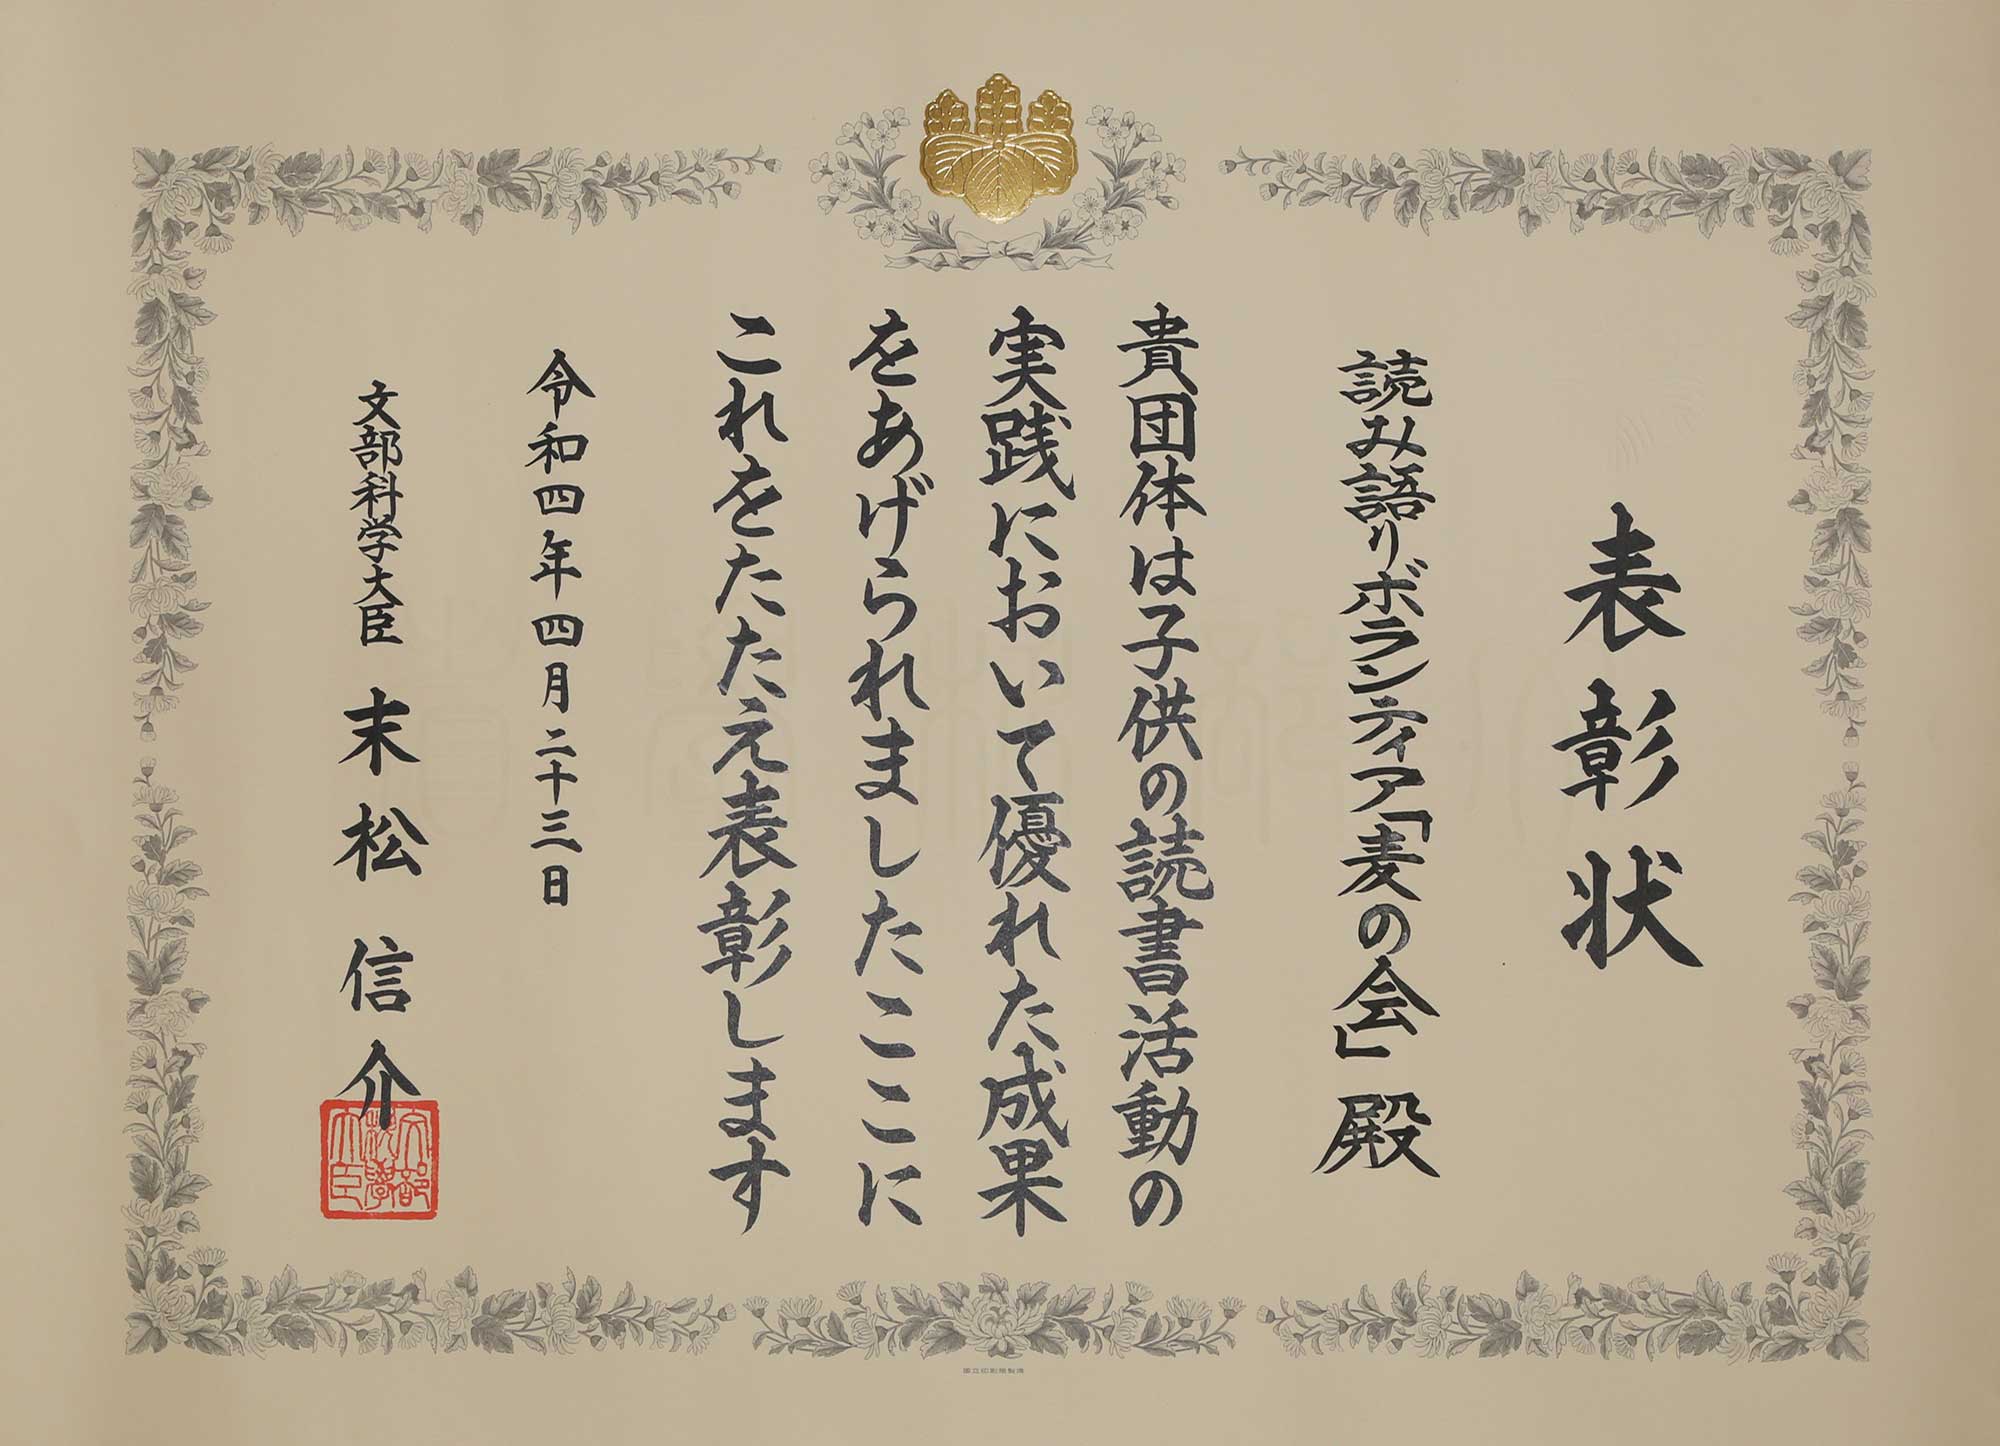 表彰状
読み語りボランティア「麦の会」殿
貴団体は子供の読書活動の
実践において優れた成果
をあげられましたここに
これをたたえ表彰します
令和四年四月二十三日
文部科学大臣 末松信介
文部
科学
大臣
国立印刷局製造